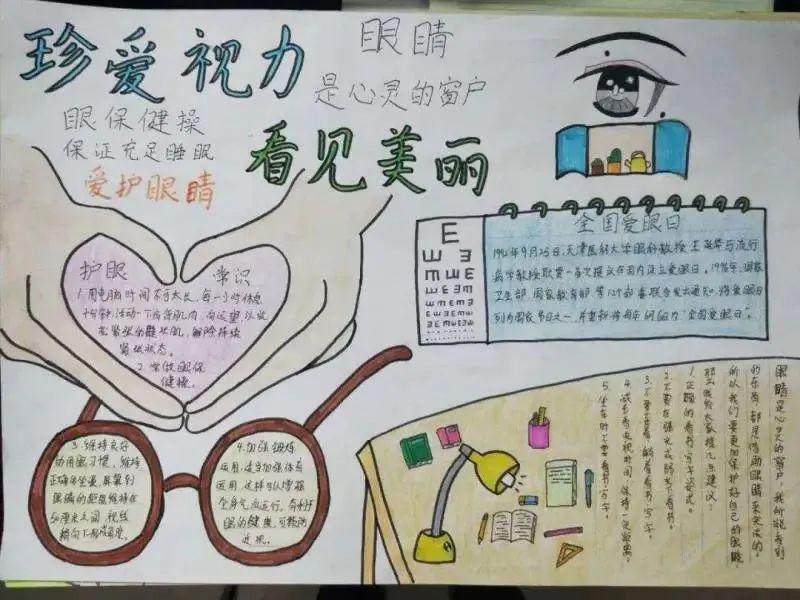 珍爱视力
眼睛
是心灵的窗户
眼保健操
保证充足睡眠
爱护眼睛
看见美丽
护眼
常识
1.用电脑时间不可太长,每一小时休息
十分钟,活动一下
向远望,以放
松紧张的睫状肌,解除持续
紧张状态。
2.常做眼保
健操。
3.保持良好
的用眼习惯,维持
正确的坐姿,屏幕到
眼睛的距离维持在
50厘米之间,视线
稍向下形成角度。
4.加强锻炼
运用,适当加强体育
运用,这样可以增强
全身气血运行,有利于
眼的健康,可预防
近视。
E
全国爱眼日
1992年9月25日,天津医科大学眼科教授王延华与流行
病学教授耿贯一首次提出在国内设立爱眼日。1996年,国家
卫生部,国家教育部,等12个部委联合发出通知,将爱眼日
列为国家节日之一,并重新将每年
为“全国爱眼日”。
眼睛是心灵的窗户,我所能看到
的东西,都是借助眼睛来完成的。
所以我们要更加保护好自己的眼睛
那么我给大家提几点建议:
1.正确的看书、写字姿势。
2.不要在强光或弱光下看书。
3.不要
看书、写字。
4.减少看电视时间,保持一定距离。
5.坐车时不要看书、写字。